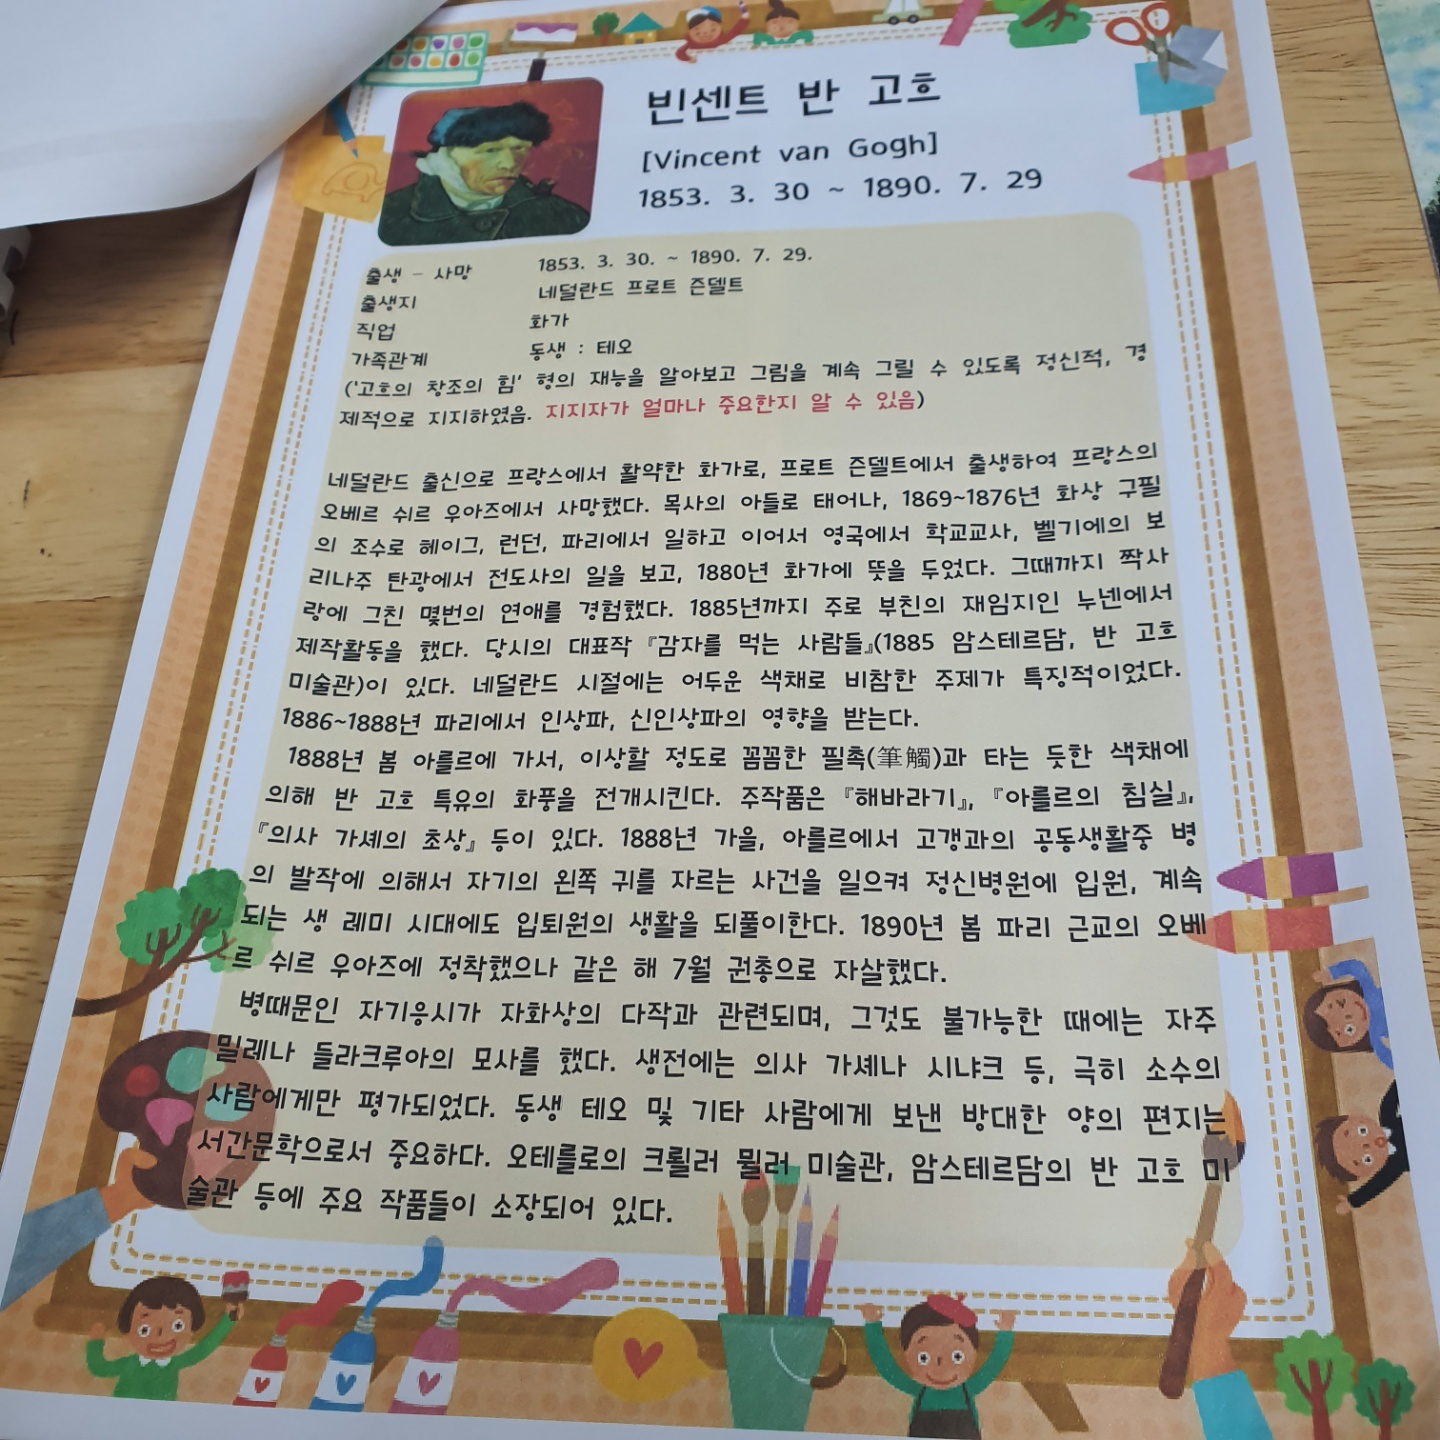 빈센트 반 고흐
[Vincent van Gogh]
1853. 3. 30 ~ 1890. 7. 29
출생 - 사망 1853. 3. 30. ~ 1890. 7. 29.
출생지 네덜란드 프로트 즌델트
직업 화가
가족관계 동생 : 테오
('고흐의 창조의 힘' 형의 재능을 알아보고 그림을 계속 그릴 수 있도록 정신적, 경
제적으로 지지하였음. 지지자가 얼마나 중요한지 알 수 있음)
네덜란드 출신으로 프랑스에서 활약한 화가로, 프로트 즌델트에서 출생하여 프랑스의
오베르 쉬르 우아즈에서 사망했다. 목사의 아들로 태어나, 1869~1876년 화상 구필
의 조수로 헤이그, 런던, 파리에서 일하고 이어서 영국에서 학교교사, 벨기에의 보
리나주 탄광에서 전도사의 일을 보고, 1880년 화가에 뜻을 두었다. 그때까지 짝사
랑에 그친 몇번의 연애를 경험했다. 1885년까지 주로 부친의 재임지인 누넨에서
제작활동을 했다. 당시의 대표작 『감자를 먹는 사람들』(1885 암스테르담, 반 고흐
미술관)이 있다. 네덜란드 시절에는 어두운 색채로 비참한 주제가 특징적이었다.
1886~1888년 파리에서 인상파, 신인상파의 영향을 받는다.
1888년 봄 아를르에 가서, 이상할 정도로 꼼꼼한 필촉(筆觸)과 타는 듯한 색채에
의해 반 고흐 특유의 화풍을 전개시킨다. 주작품은 『해바라기』, 『아를르의 침실』,
『의사 가셰의 초상』 등이 있다. 1888년 가을, 아를르에서 고갱과의 공동생활중 병
의 발작에 의해서 자기의 왼쪽 귀를 자르는 사건을 일으켜 정신병원에 입원, 계속
되는 생 레미 시대에도 입퇴원의 생활을 되풀이한다. 1890년 봄 파리 근교의 오베
르 쉬르 우아즈에 정착했으나 같은 해 7월 권총으로 자살했다.
병때문인 자기응시가 자화상의 다작과 관련되며, 그것도 불가능한 때에는 자주
밀레나 들라크루아의 모사를 했다. 생전에는 의사 가셰나 시냐크 등, 극히 소수의
사람에게만 평가되었다. 동생 테오 및 기타 사람에게 보낸 방대한 양의 편지는
서간문학으로서 중요하다. 오테를로의 크뢸러 뮐러 미술관, 암스테르담의 반 고흐 미
술관 등에 주요 작품들이 소장되어 있다.